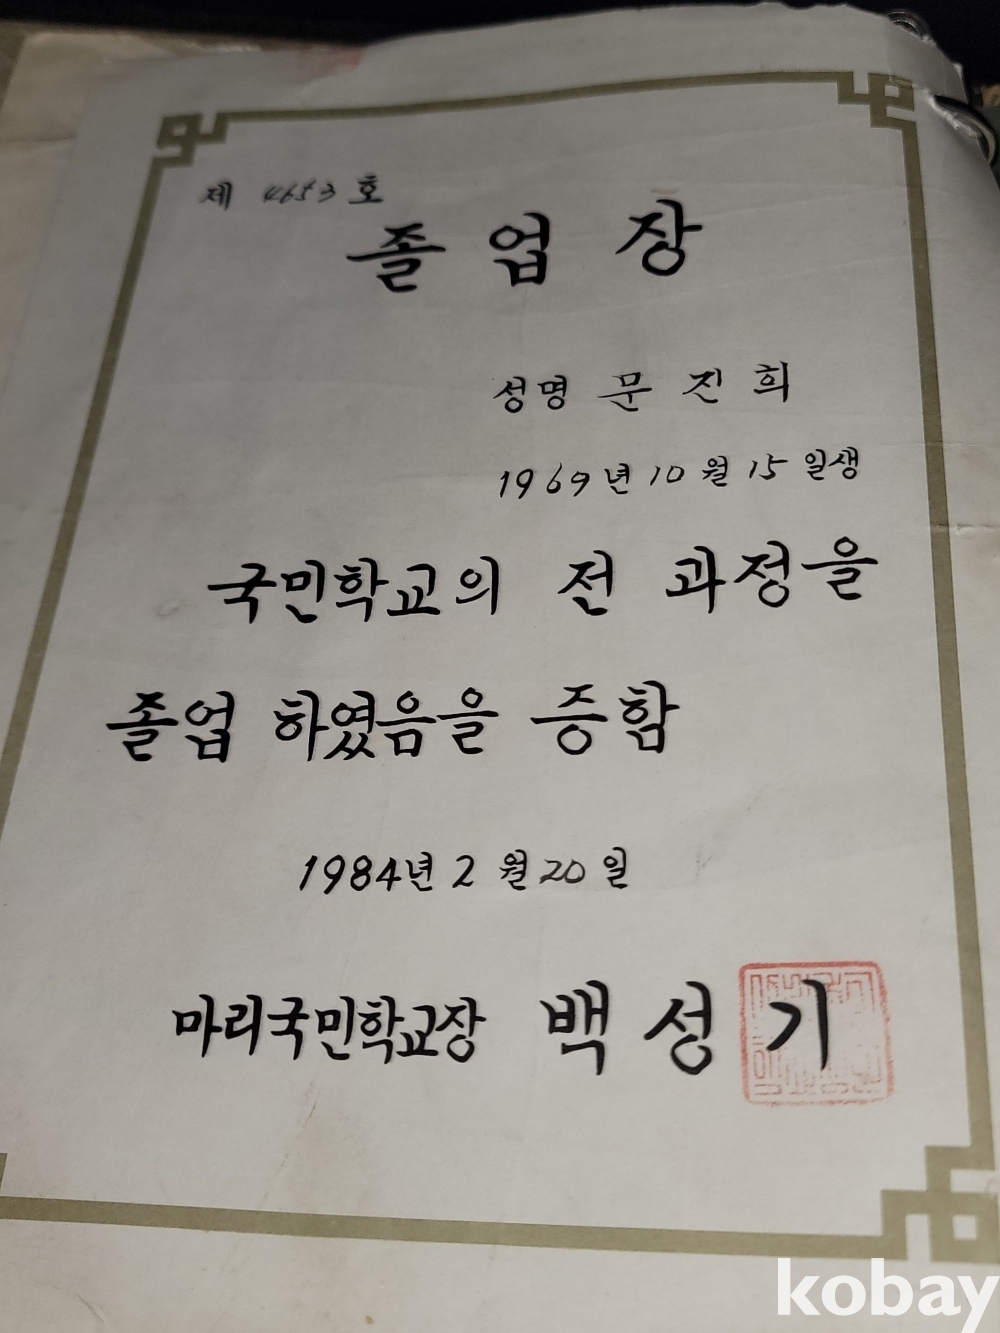 제 4653 호
졸 업 장
성명 문 진 희
1969년 10월 15일생
국민학교의 전 과정을
졸업 하였음을 증함
1984년 2월 20일
마리국민학교장 백 성 기
kobay